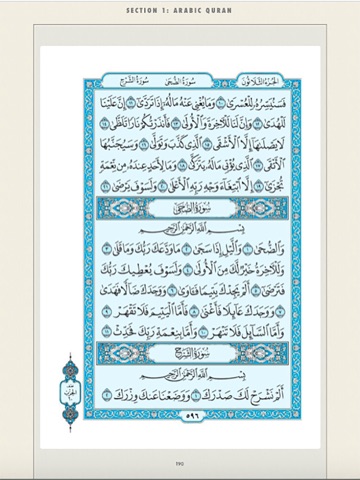 SECTION 1: ARABIC QURAN
الجزء الثلاثون سورة الضحى سورة الشرح
فَسَنُيَسِّرُهُۥ لِلْعُسْرَىٰ ١٠ وَمَا يُغْنِى عَنْهُ مَالُهُۥٓ إِذَا تَرَدَّىٰٓ ١١ إِنَّ عَلَيْنَا
لَلْهُدَىٰ ١٢ وَإِنَّ لَنَا لَلْأَخِرَةَ وَٱلْأُولَىٰ ١٣ فَأَنذَرْتُكُمْ نَارًا تَلَظَّىٰ ١٤
لَا يَصْلَىٰهَآ إِلَّا ٱلْأَشْقَى ١٥ ٱلَّذِى كَذَّبَ وَتَوَلَّىٰ ١٦ وَسَيُجَنَّبُهَا
ٱلْأَتْقَى ١٧ ٱلَّذِى يُؤْتِى مَالَهُۥ يَتَزَكَّىٰ ١٨ وَمَا لِأَحَدٍ عِندَهُۥ مِن نِّعْمَةٍ
تُجْزَىٰٓ ١٩ إِلَّا ٱبْتِغَآءَ وَجْهِ رَبِّهِ ٱلْأَعْلَىٰ ٢٠ وَلَسَوْفَ يَرْضَىٰ ٢١
سُورَةُ الضُّحَىٰ
بِسْمِ ٱللَّهِ ٱلرَّحْمَٰنِ ٱلرَّحِيمِ
وَٱلضُّحَىٰ ١ وَٱلَّيْلِ إِذَا سَجَىٰ ٢ مَا وَدَّعَكَ رَبُّكَ وَمَا قَلَىٰ ٣
وَلَلْأَخِرَةُ خَيْرٌ لَّكَ مِنَ ٱلْأُولَىٰ ٤ وَلَسَوْفَ يُعْطِيكَ رَبُّكَ
فَتَرْضَىٰٓ ٥ أَلَمْ يَجِدْكَ يَتِيمًا فَـَٔاوَىٰ ٦ وَوَجَدَكَ ضَآلًّا فَهَدَىٰ
٧ وَوَجَدَكَ عَآئِلًا فَأَغْنَىٰ ٨ فَأَمَّا ٱلْيَتِيمَ فَلَا تَقْهَرْ ٩
وَأَمَّا ٱلسَّآئِلَ فَلَا تَنْهَرْ ١٠ وَأَمَّا بِنِعْمَةِ رَبِّكَ فَحَدِّثْ ١١
سُورَةُ الشَّرْحِ
بِسْمِ ٱللَّهِ ٱلرَّحْمَٰنِ ٱلرَّحِيمِ
أَلَمْ نَشْرَحْ لَكَ صَدْرَكَ ١ وَوَضَعْنَا عَنكَ وِزْرَكَ ٢
نصف
الحزب
٥٩٦
190